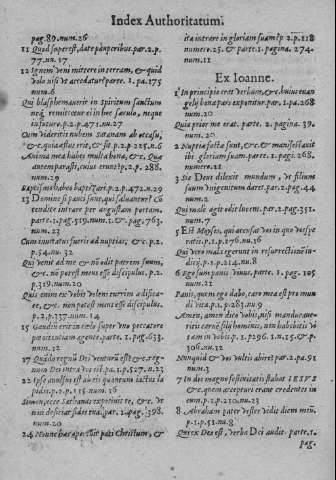 Index Authoritatum.
pag.89.num.26
11 Quod superest, date pauperibus. par.2.p.
77.nu.17
12 Ignem veni mittere in terram, & quid
volo nisi vt accedatur? parte. 1. pa.175
num.6
Qui blasphemauerit in spiritum sanctum
neq́, remittetur ei in hoc sæculo, neque
in futuro. p.2.p.471.nu.27
Cum videritis nubem oriri ab occasu,
&c. quia æstus erit, & sit p.2.p.225.n.6
Anima mea habes multa bona, &c. Quæ
autem parasti, cuius erunt? p.2.p.288.
num.29
Baptismo habeo baptizari.p.2.p.472.n.29
13 Domine si pauci sunt, qui saluantur? Co
tendite intrare per angustam portam.
parte.1.pag.519.num.2.& pag.763.
num.23
Cum inuitatus fueris ad nuptias, &c. p.2.
p.54.nu.32
Qui venit ad me & nō odit patrem suum,
&c. nō potest meus esse discipulus. p.2.
p.319.num.20
Quis enim ex vobis volens turrim ædifica-
re, &c. non potest meus esse discipulus
p.2.p.337.num.14
15 Gaudiū erit in cælo super vno peccatore
pœnitentiam agente. parte.1.pag.633.
num.32
17 Quādo regnū Dei venturū est & c.reg-
num Dei intra vos est.pa.1.p.527.n.23
22 Ipse auulsus est ab eis quantum iactus la
pidis.p.2.p.115.num.36
Simon, ecce Sathanas expetiuit te, &c. vt
non deficiat fides tua.par.2.pag.398.
num.20
24 Nonne hæc oportuit pati Christum, &
ita intrare in gloriam suam? p.2.p.118
numero.25. & parte.1.pagina.274.
num.11
Ex Ioanne.
1 In principio erat Verbum, & c. huius euan
gelij bona pars exponitur.par.1.pa.268
num.20
Quia prior me erat. parte 2. pagina.39.
num.20
2 Nuptiæ factæ sunt, & c. & manifestauit
ibi gloriam suam. parte.2.pagi.268.
numero.11
3 Sic Deus dilexit mundum, vt filium
suum vnigenitum daret.par.2.pag.44
num.2
Qui male agit odit lucem.par.2.pag.351.
num.7
5 Est Moyses, qui accusat vos in quo vos spe
ratis.p.1.p.276.nu.36
Qui vero mala egerunt in resurrectionē iu-
dicij.p.1.p.214.nu.8
6 Ego sum panis viuus. parte.1.pag.105
num.21
Panis, quem ego dabo, caro mea est pro mun
di vita.p.1.p.263.n.9
Amen, amen dico vobis, nisi manducaue-
ritis carnē filij hominis, non habebitis vi
tam in vobis p.1.p296.1.n.15.& p.2.
306.nu.12
Nunquid & vos vultis abire? par.2.pa.91
num.3
7 In die magno festiuitatis stabat IESVS
&c.quem accepturi erant credentes in
eum.p.2.p.210.nu.23
8 Abraham pater vester vidit diem meū.
p.1.p.51.nu.26
Qui ex Deo est, verba Dei audit.parte.1.
pag.